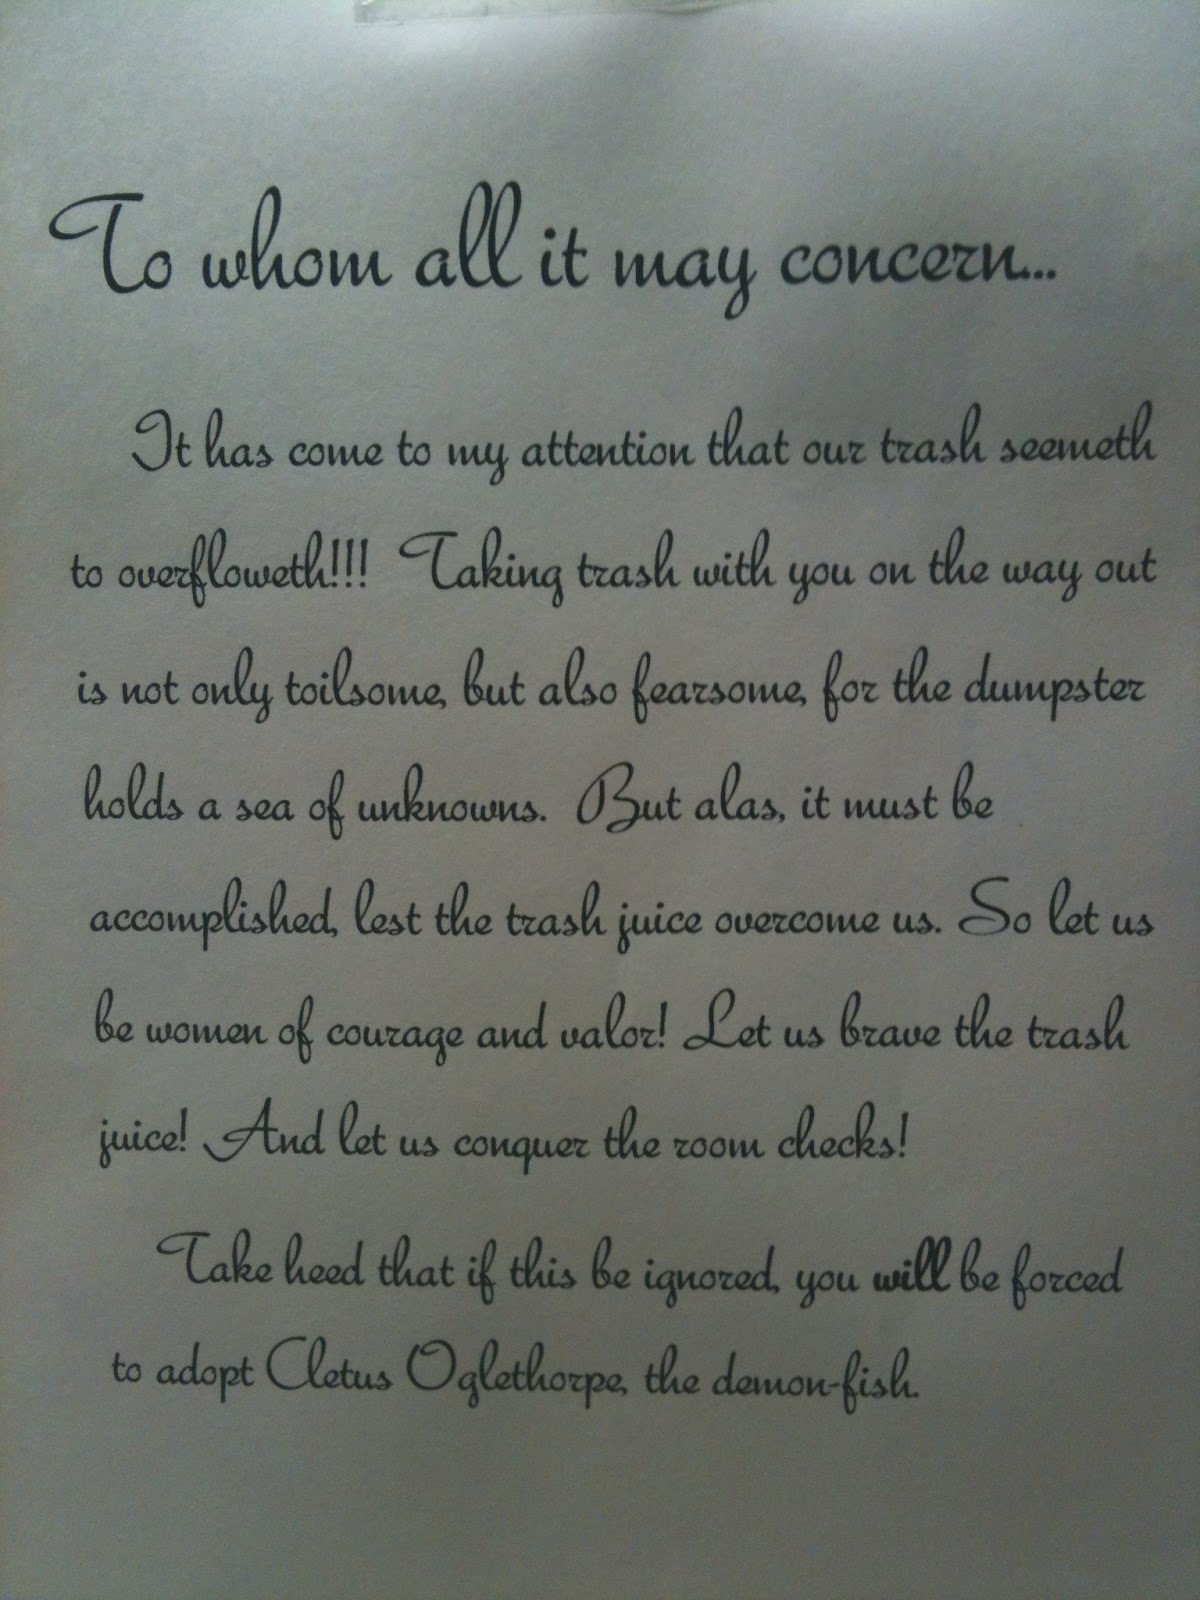 To whom all it may concern...
It has come to my attention that our trash seemeth
to overfloweth!!! Taking trash with you on the way out
is not only toilsome, but also fearsome, for the dumpster
holds a sea of unknowns. But alas, it must be
accomplished, lest the trash juice overcome us. So let us
be women of courage and valor! Let us brave the trash
juice! And let us conquer the room checks!
Take heed that if this be ignored, you will be forced
to adopt Cletus Oglethorpe, the demon-fish.